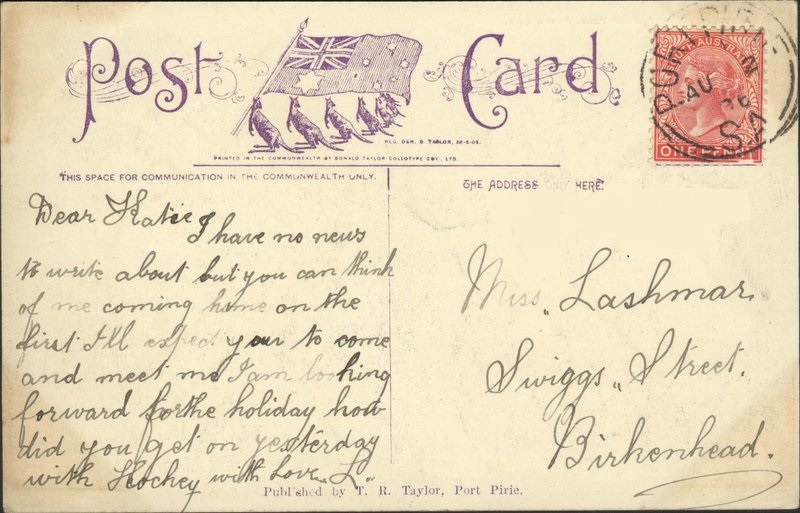 Post Card
REG. DSN. D. TAYLOR, 22-5-05.
PRINTED IN THE COMMONWEALTH BY DONALD TAYLOR COLLOTYPE COY., LTD.
THIS SPACE FOR COMMUNICATION IN THE COMMONWEALTH ONLY.
THE ADDRESS ONLY HERE.
AU
S.A
ONE PENNY
Dear Katie
I have no news
to write about but you can think
of me coming home on the
first I'll expect you to come
and meet me I am looking
forward for the holiday how
did you get on yesterday
with Hockey with Love L.
Miss Lashmar,
Swiggs Street.
Birkenhead.
Published by T. R. Taylor, Port Pirie.